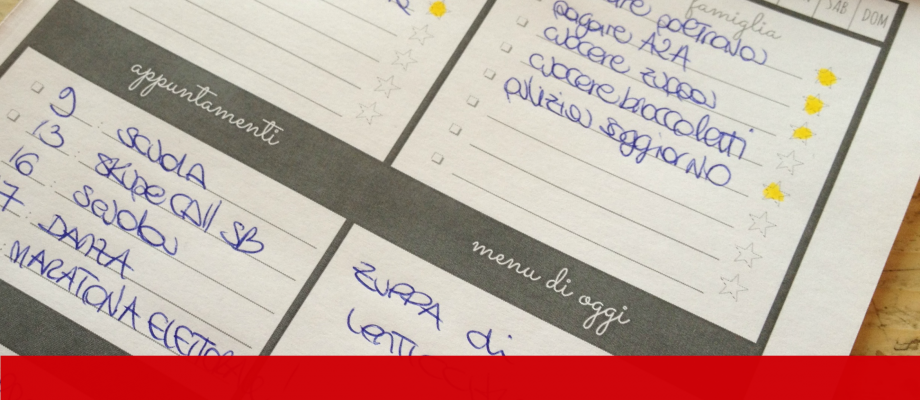 SAB DOM
famiglia
pagare A2A
cuocere zuppa
cuocere broccoletti
pulizia soggiorno
appuntamenti
9 SCUOLA
13 SKYPE CALL SB
16 Scuola
7 DANZA
MARATONA
menu di oggi
ZUPPA di